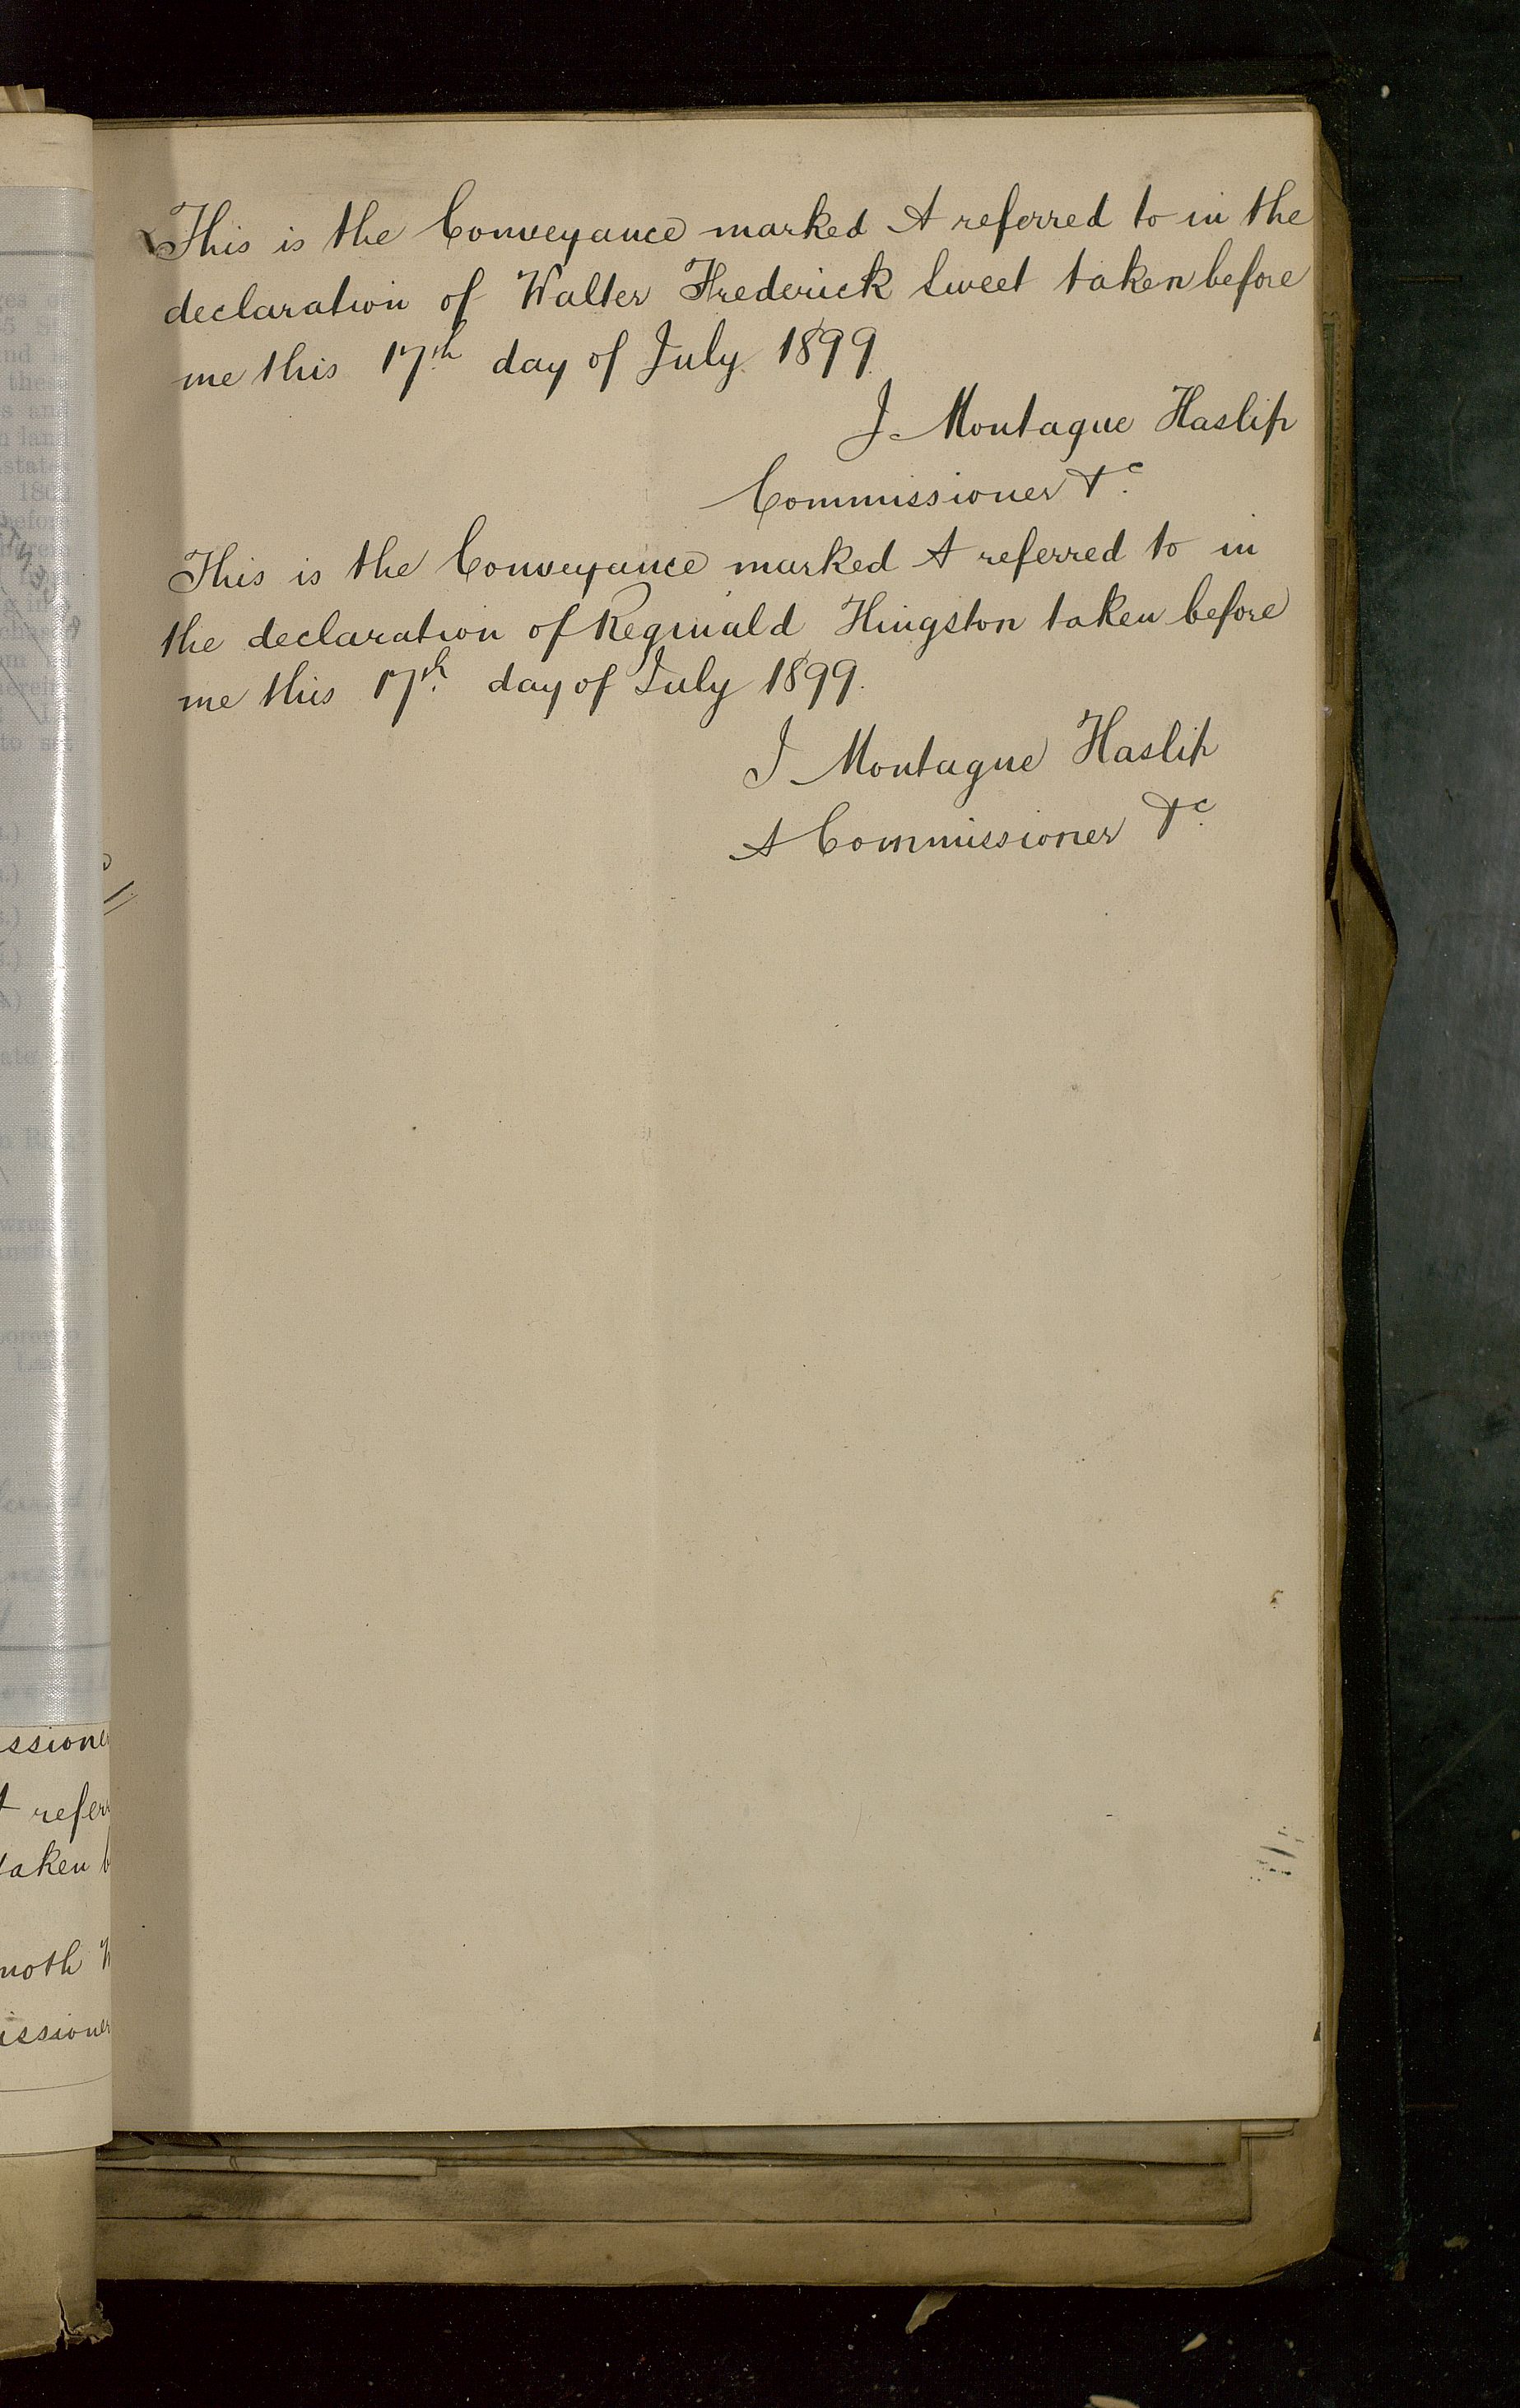 This is the Conveyance marked A referred to in the
declaration of Walter Frederick Sweet taken before
me this 17th day of July 1899.
J. Montague Haslip
Commissioner &c.
This is the Conveyance marked A referred to in
the declaration of Reginald Hingston taken before
me this 17th. day of July 1899.
J Montague Haslip
A Commissioner &c.